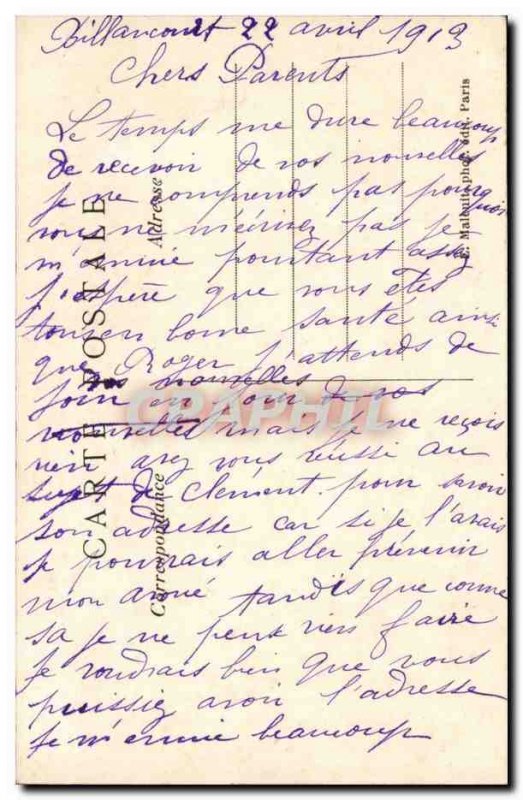 Billancourt 22 avril 1913
Chers Parents
Le temps me dure beaucoup
de recevoir de vos nouelles
je ne comprends pas pourquoi
vous ne pas je
m'annuie pourtant assez
j'espère que vous êtes
tous en bonne santé ainsi
que Roger j'attends de
jour en jour de vos
nouvelles
nouvelles mais je ne reçois
rien avez vous réussi au
sujet de Clement pour savoir
son adresse car si je l'avais
je pourrais aller prévenir
mon avoué tandis que comme
sa je ne peux rien faire
je voudrais bien que vous
puissiez avoir l'adresse
je m'ennuie beaucoup
CARTE POSTALE
Correspondance
Adresse
E. Malcuit, phot. édit. Paris
CPAPHIL